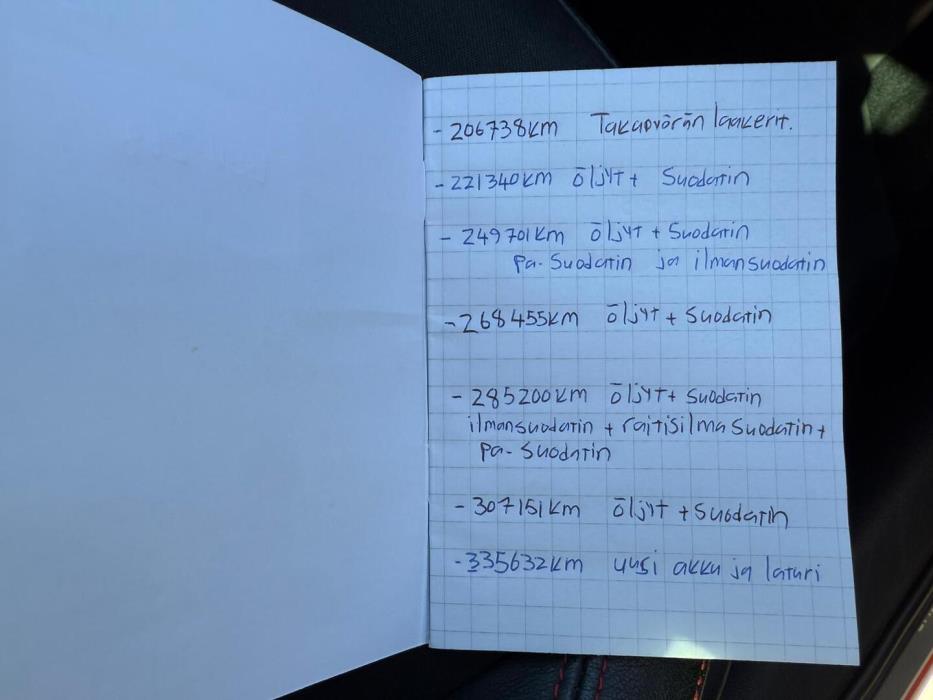 - 206738km Takapyörän laakerit.
- 221340km öljyt + Suodatin
- 249701km öljyt + Suodatin
pa-Suodatin ja ilmansuodatin
- 268455km öljyt + Suodatin
- 285200km öljyt + Suodatin
ilmansuodatin + raitisilmaSuodatin +
pa-Suodatin
- 307151km öljyt + Suodatin
- 335632km uusi akku ja laturi